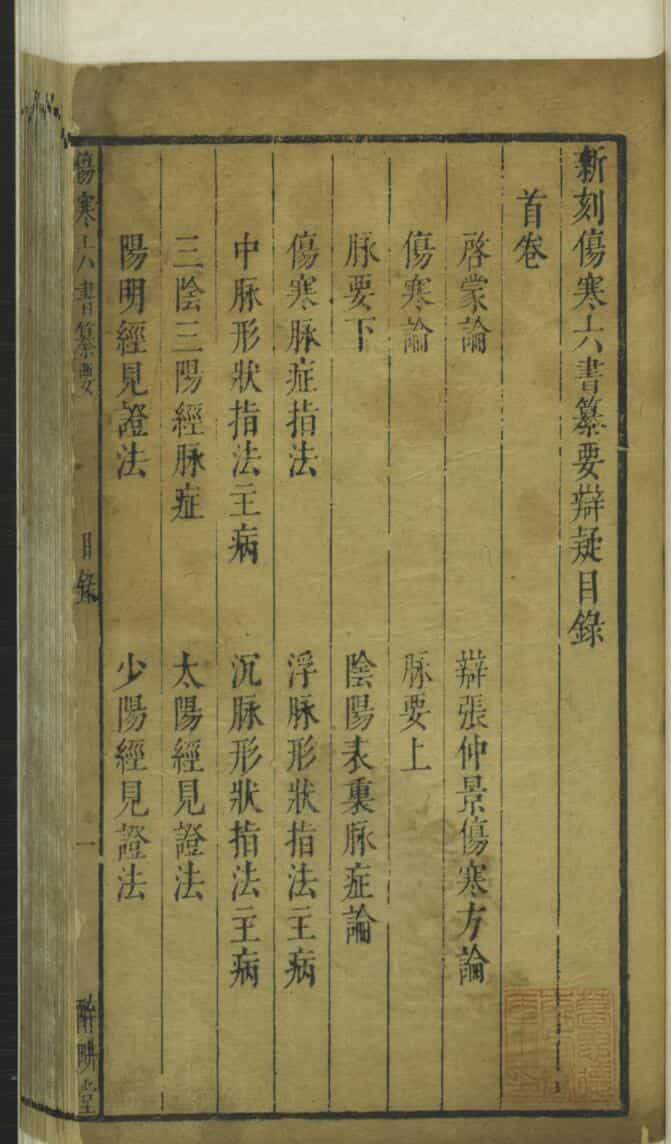 新刻傷寒六書纂要辯疑目錄
首卷
啓蒙論 辯張仲景傷寒方論
傷寒論 脉要上
脉要下 陰陽表裏脉症論
傷寒脉症指法 浮脉形狀指法主病
中脉形狀指法主病 沉脉形狀指法主病
三陰三陽經脉症 太陽經見證法
陽明經見證法 少陽經見證法
傷寒六書纂要 目錄 一 醉畊堂